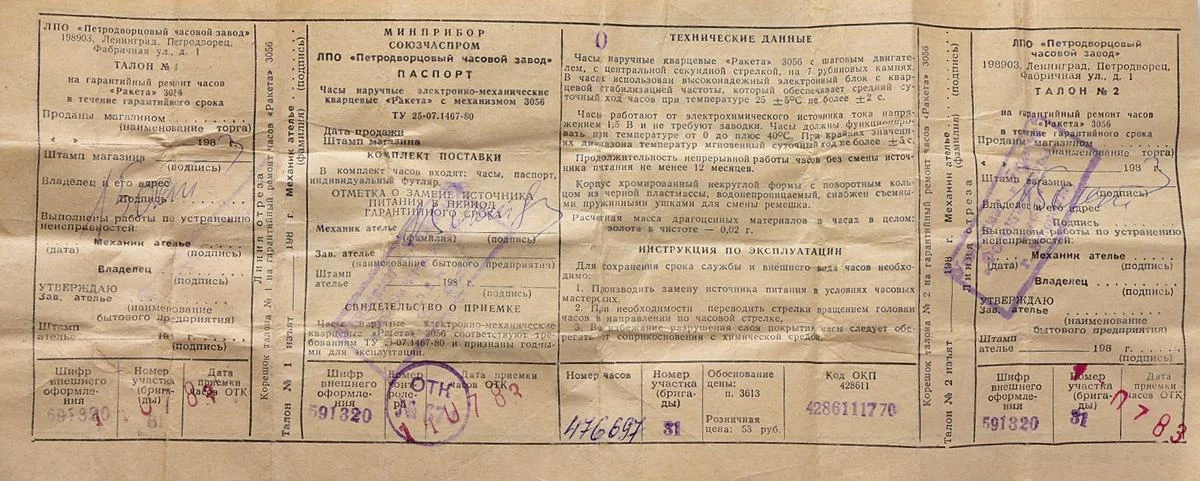 ЛПО «Петродворцовый часовой завод»
198903, Ленинград, Петродворец,
Фабричная ул., д. 1
ТАЛОН № 1
на гарантийный ремонт часов
«Ракета» 3056
в течение гарантийного срока
Проданы магазином
(наименование торга)
« » 198 г.
Штамп магазина
(подпись)
Владелец и его адрес
Подпись
Выполнены работы по устранению
неисправностей:
Механик ателье
(дата) (подпись)
Владелец
(подпись)
УТВЕРЖДАЮ
Зав. ателье
(наименование
бытового предприятия)
Штамп
ателье 19 г.
(подпись)
Шифр внешнего оформления
591320
Номер участка (бригады)
81
Дата приемки часов ОТК
1 0 7 83
Линия отреза
Корешок талона № 1 на гарантийный ремонт часов «Ракета» 3056
Талон № 1 изъят 198 г. Механик ателье (фамилия) (подпись)
МИНПРИБОР
СОЮЗЧАСПРОМ
ЛПО «Петродворцовый часовой завод»
ПАСПОРТ
Часы наручные электронно-механические
кварцевые «Ракета» с механизмом 3056
ТУ 25-07.1467-80
Дата продажи
Штамп магазина
КОМПЛЕКТ ПОСТАВКИ
В комплект часов входят: часы, паспорт,
индивидуальный футляр.
ОТМЕТКА О ЗАМЕНЕ ИСТОЧНИКА
ПИТАНИЯ В ПЕРИОД
ГАРАНТИЙНОГО СРОКА
Механик ателье
(фамилия) (подпись)
Зав. ателье
(наименование бытового предприятия)
Штамп
ателье 198 г.
(подпись)
СВИДЕТЕЛЬСТВО О ПРИЕМКЕ
Часы наручные электронно-механические
кварцевые «Ракета» 3056 соответствуют требованиям
ТУ 25-07.1467-80 и признаны годными
для эксплуатации.
Шифр внешнего оформления
591320
Номер
ОТК
часов ОТК
1 1 0 7 83
0
ТЕХНИЧЕСКИЕ ДАННЫЕ
Часы наручные кварцевые «Ракета» 3056 с шаговым двигате-
лем, с центральной секундной стрелкой, на 7 рубиновых камнях.
В часах использован высоконадежный электронный блок с квар-
цевой стабилизацией частоты, который обеспечивает средний су-
точный ход часов при температуре 25 ±5°С не более ±2 с.
Часы работают от электрохимического источника тока напря-
жением 1,5 В и не требуют заводки. Часы должны функциониро-
вать при температуре от 0 до плюс 40°С. При крайних значени-
ях диапазона температур мгновенный суточный ход не более ±5 с.
Продолжительность непрерывной работы часов без смены источ-
ника питания не менее 12 месяцев.
Корпус хромированный некруглой формы с поворотным коль-
цом из черной пластмассы, водонепроницаемый, снабжен съемны-
ми пружинными ушками для смены ремешка.
Расчетная масса драгоценных материалов в часах в целом:
золота в чистоте — 0,02 г.
ИНСТРУКЦИЯ ПО ЭКСПЛУАТАЦИИ
Для сохранения срока службы и внешнего вида часов необхо-
димо:
1. Производить замену источника питания в условиях часовых
мастерских.
2. При необходимости переводить стрелки вращением головки
часов в направлении по часовой стрелке.
3. Во избежание разрушения слоя покрытия часы следует обере-
гать от соприкосновения с химической средой.
Номер часов
476697
Номер участка (бригады)
81
Обоснование
цены:
п. 3613
Розничная
цена: 53 руб.
Код ОКП
428611
4286111770
Корешок талона № 2 на гарантийный ремонт часов «Ракета» 3056
Талон № 2 изъят 198 г. Механик ателье (фамилия) (подпись)
Линия отреза
ЛПО «Петродворцовый
часовой завод»
198903, Ленинград, Петродворец,
Фабричная ул., д. 1
ТАЛОН № 2
на гарантийный ремонт часов
«Ракета» 3056
в течение гарантийного срока
Проданы магазином
(наименование торга)
« » 198 г.
Штамп магазина
(подпись)
Владелец и его адрес
Подпись
Выполнены работы по устранению
неисправностей:
Механик ателье
(дата) (подпись)
Владелец
(подпись)
УТВЕРЖДАЮ
Зав. ателье
(наименование
бытового предприятия)
Штамп
ателье 198 г.
(подпись)
Шифр внешнего оформления
591320
Номер участка (бригады)
81
Дата приемки часов ОТК
0 7 83